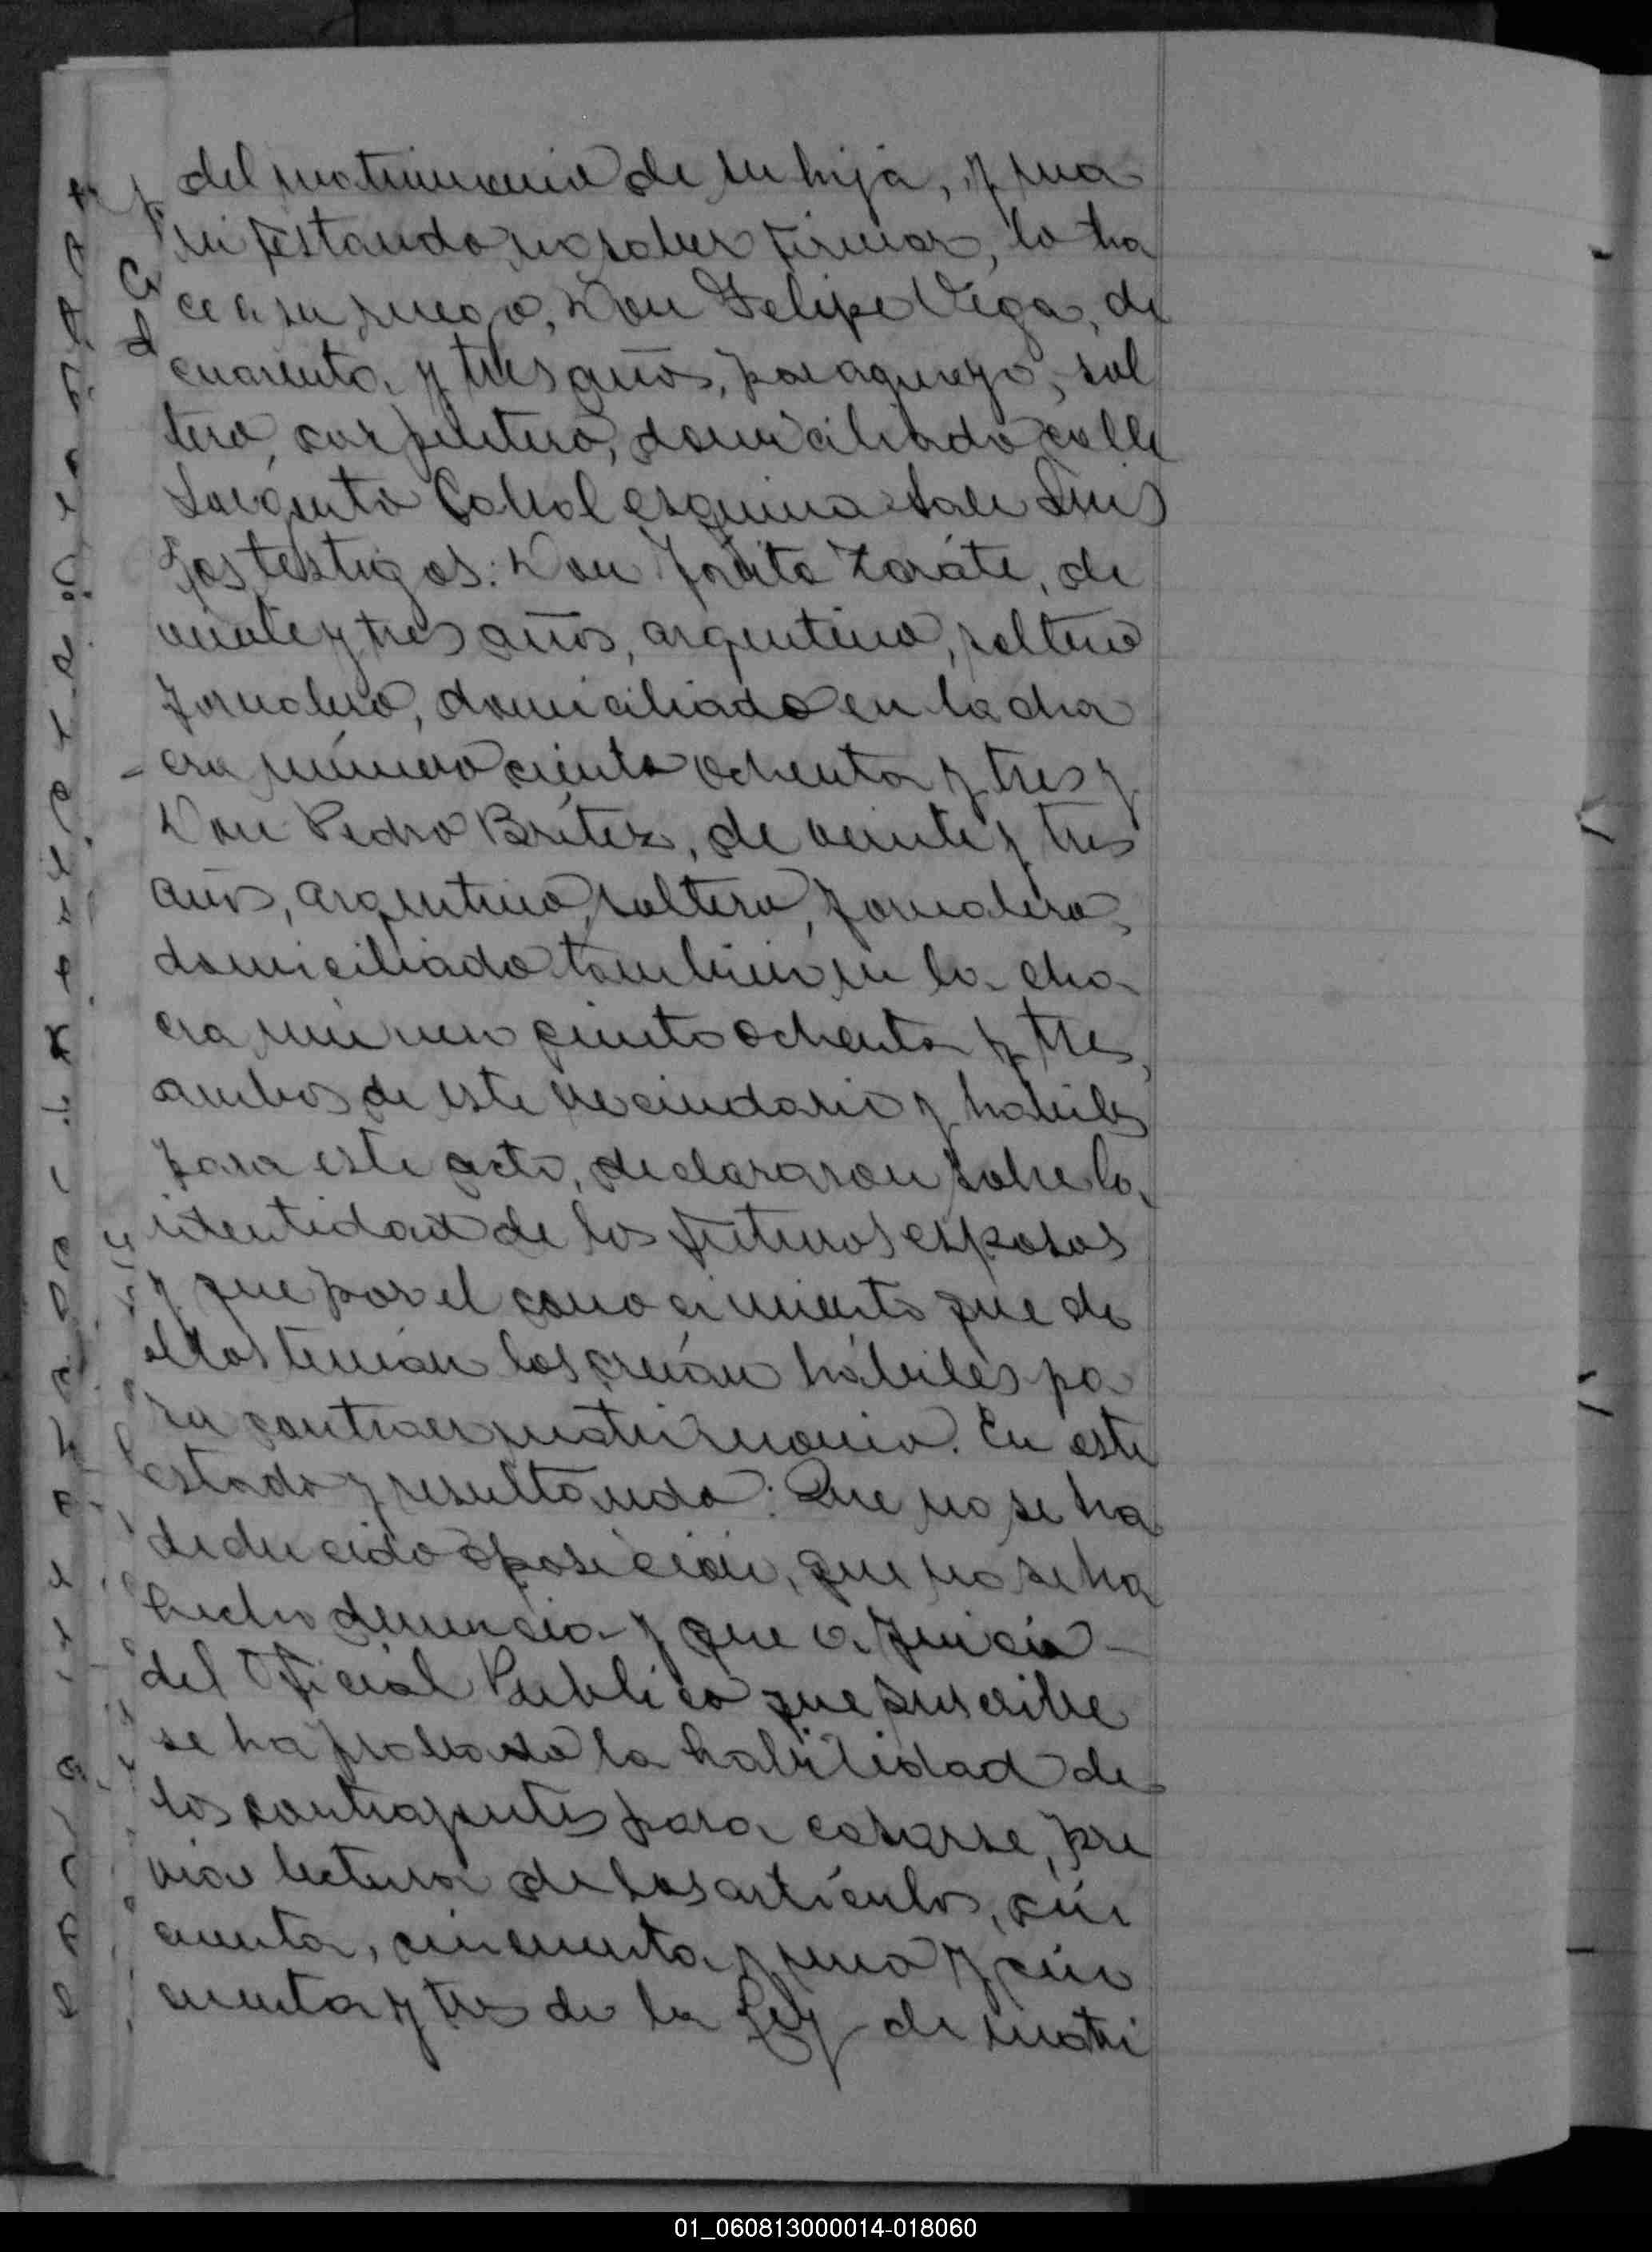 del matrimonio de su hija, y ma
nifestando no saber firmar, lo ha
ce a su ruego, Don Felipe Vega, de
cuarenta y tres años, paraguayo, sol
tero, carpintero, domiciliado calle
Sargento Cabral esquina San Luis
Los testigos: Don Zárate, de
veinte y tres años, argentino, soltero
jornalero, domiciliado en la cha
cra número ciento ochenta y tres y
Don Pedro Brítez, de veinte y tres
años, argentino, soltero, jornalero,
domiciliado tambien en la cha
cra número ciento ochenta y tres,
ambos de este vecindario y habiles
para este acto, declararon sobre la
identidad de los futuros esposos
y que por el conocimiento que de
ellos tenían los creían hábiles pa
ra contraer matrimonio. En este
estado y resultando: Que no se ha
deducido oposición, que no se ha
hecho denuncia y que a juicio
del Oficial Publico que suscribe
se ha probado la habilidad de
los contrayentes para casarse, pre
via lectura de los artículos, cin
cuenta, cincuenta y uno y cin
cuenta y tres de la Ley de matri
01_060813000014-018060